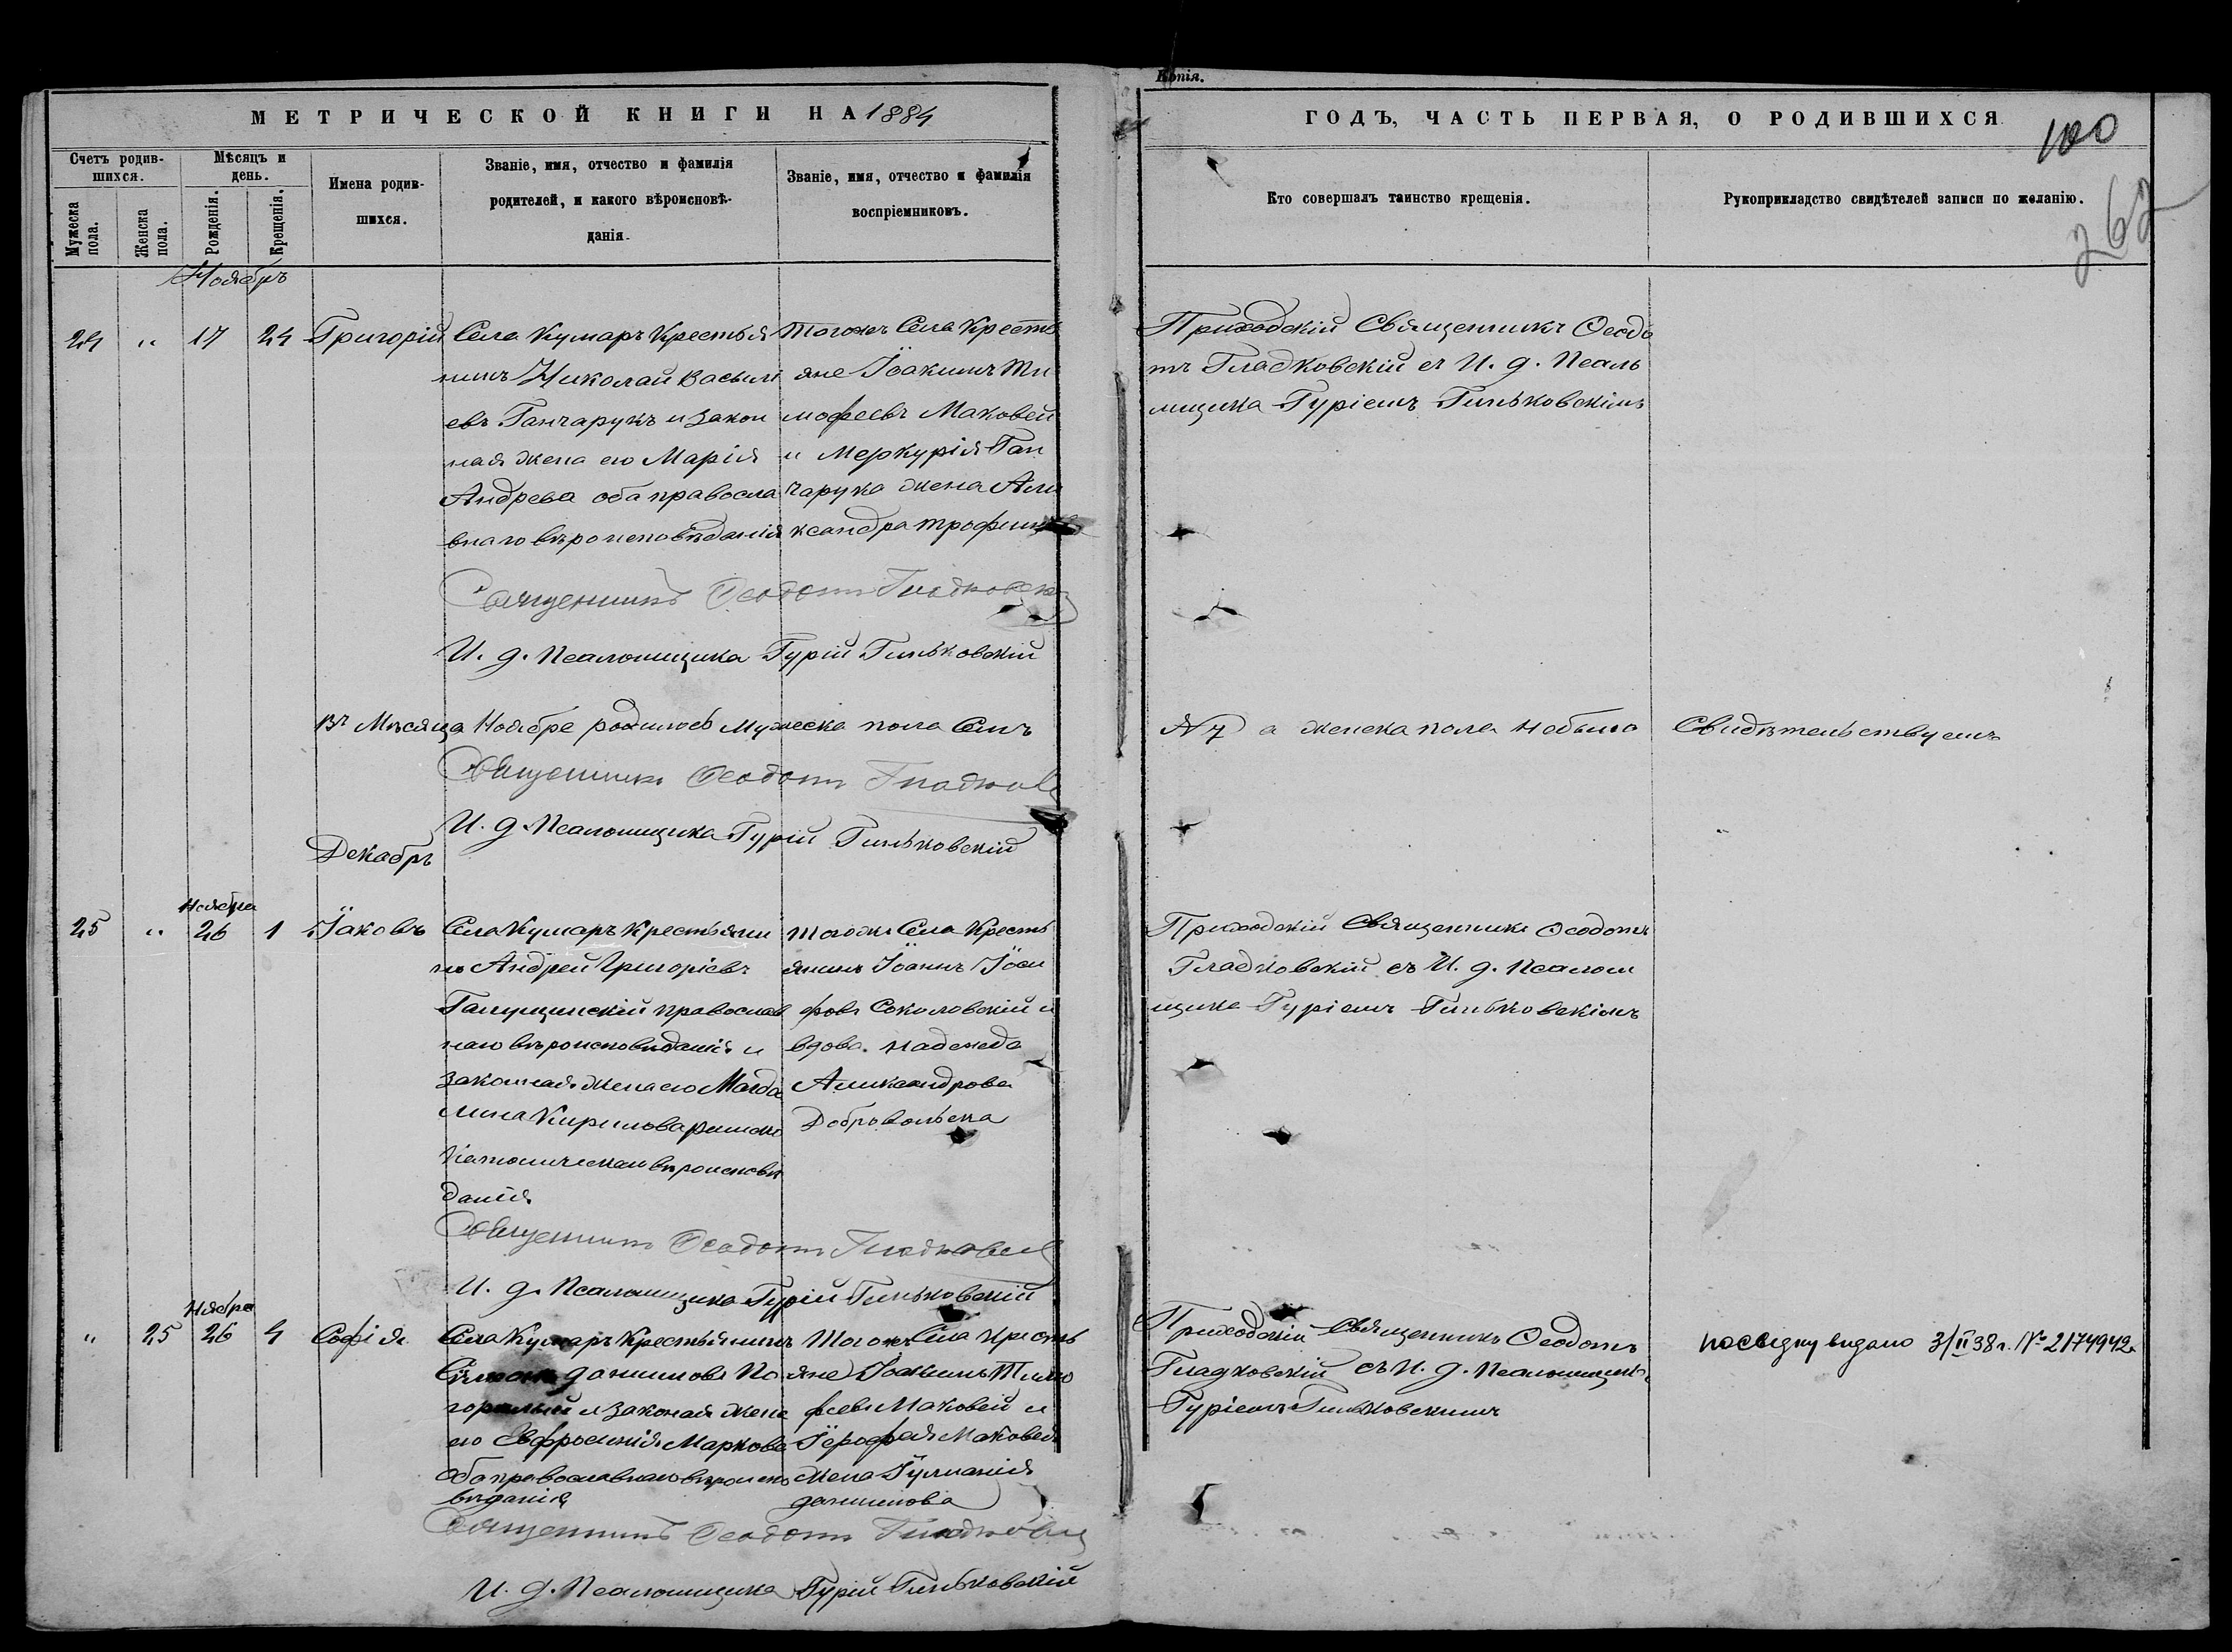 Копія.
МЕТРИЧЕСКОЙ КНИГИ НА 1884
ГОДЪ, ЧАСТЬ ПЕРВАЯ, О РОДИВШИХСЯ
100
262
Счетъ родив-
шихся.
Мужеска
пола.
Женска
пола.
Мѣсяцъ и
день.
Рожденія.
Крещенія.
Имена родив-
шихся.
Званіе, имя, отчество и фамилія
родителей, и какого вѣроисповѣ-
данія.
Званіе, имя, отчество и фамилія
воспріемниковъ.
Кто совершалъ таинство крещенія.
Рукоприкладство свидѣтелей записи по желанію.
Ноябрь
24 " 17 24 Григорій
Села Кумаръ Крестья
нинъ Николай Васили
евъ Ганчарукъ и закон
ная жена его Марія
Андрева оба правосла
внаго вѣроисповѣданія
Тогожъ Села Кресть
яне Іоакимъ Ти
мофеевъ Маковей
и Меркурія Ган
чарука жена Але
ксандра Трофим
Приходскій Священникъ Ѳеодо
тъ Гладковскій съ И. д. Псаль
мщика Гуріемъ Гиньковскімъ
Священникъ Ѳеодотъ Гладковск
И. д. Псаломщика Гурій Гиньковскій
Въ Мѣсяца Ноябре родилось Мужеска пола Семъ
№ 7 а женска пола небыло
Свидѣтельствуемъ
Священникъ Ѳеодотъ Гладков
И. д. Псаломщика Гурій Гиньковскій
Декабрь
Ноября
25 " 26 1 Іаковъ
Села Кумаръ Крестьяни
нъ Андрей Григоріевъ
Галущинскій православ
наго вѣроисповѣданія и
законная жена его Магда
лина Кирилова римско
католическаго вѣроисповѣ
данія
тогожъ Села Кресть
янинъ Іоаннъ Іоси
фовъ Соколовскій и
вдова Надежда
Александрова
Добровольска
Приходскій Священникъ Ѳеодотъ
Гладковскій съ И. д. Псалом
щика Гуріемъ Гиньковскімъ
Священникъ Ѳеодотъ Гладковск
И. д. Псаломщика Гурій Гиньковскій
Ноября
" 25 26 4 Софія
Села Кумаръ Крестьянинъ
Симонъ даниловъ По
горелый и законая жена
его Евфросинія Маркова
оба православнаго вѣроиспо
вѣданія
Тогожъ Села Кресть
яне Іоакимъ Тимо
феевъ Маковей и
Іерофея Маковея
жена Іулианія
данилова
Приходскій Священникъ Ѳеодотъ
Гладковскій съ И. д. Псаломщика
Гуріемъ Гиньковскимъ
посвідку видано 3/II 38 г. № 2174942.
Священникъ Ѳеодотъ Гладковск
И. д. Псаломщика Гурій Гиньковскій